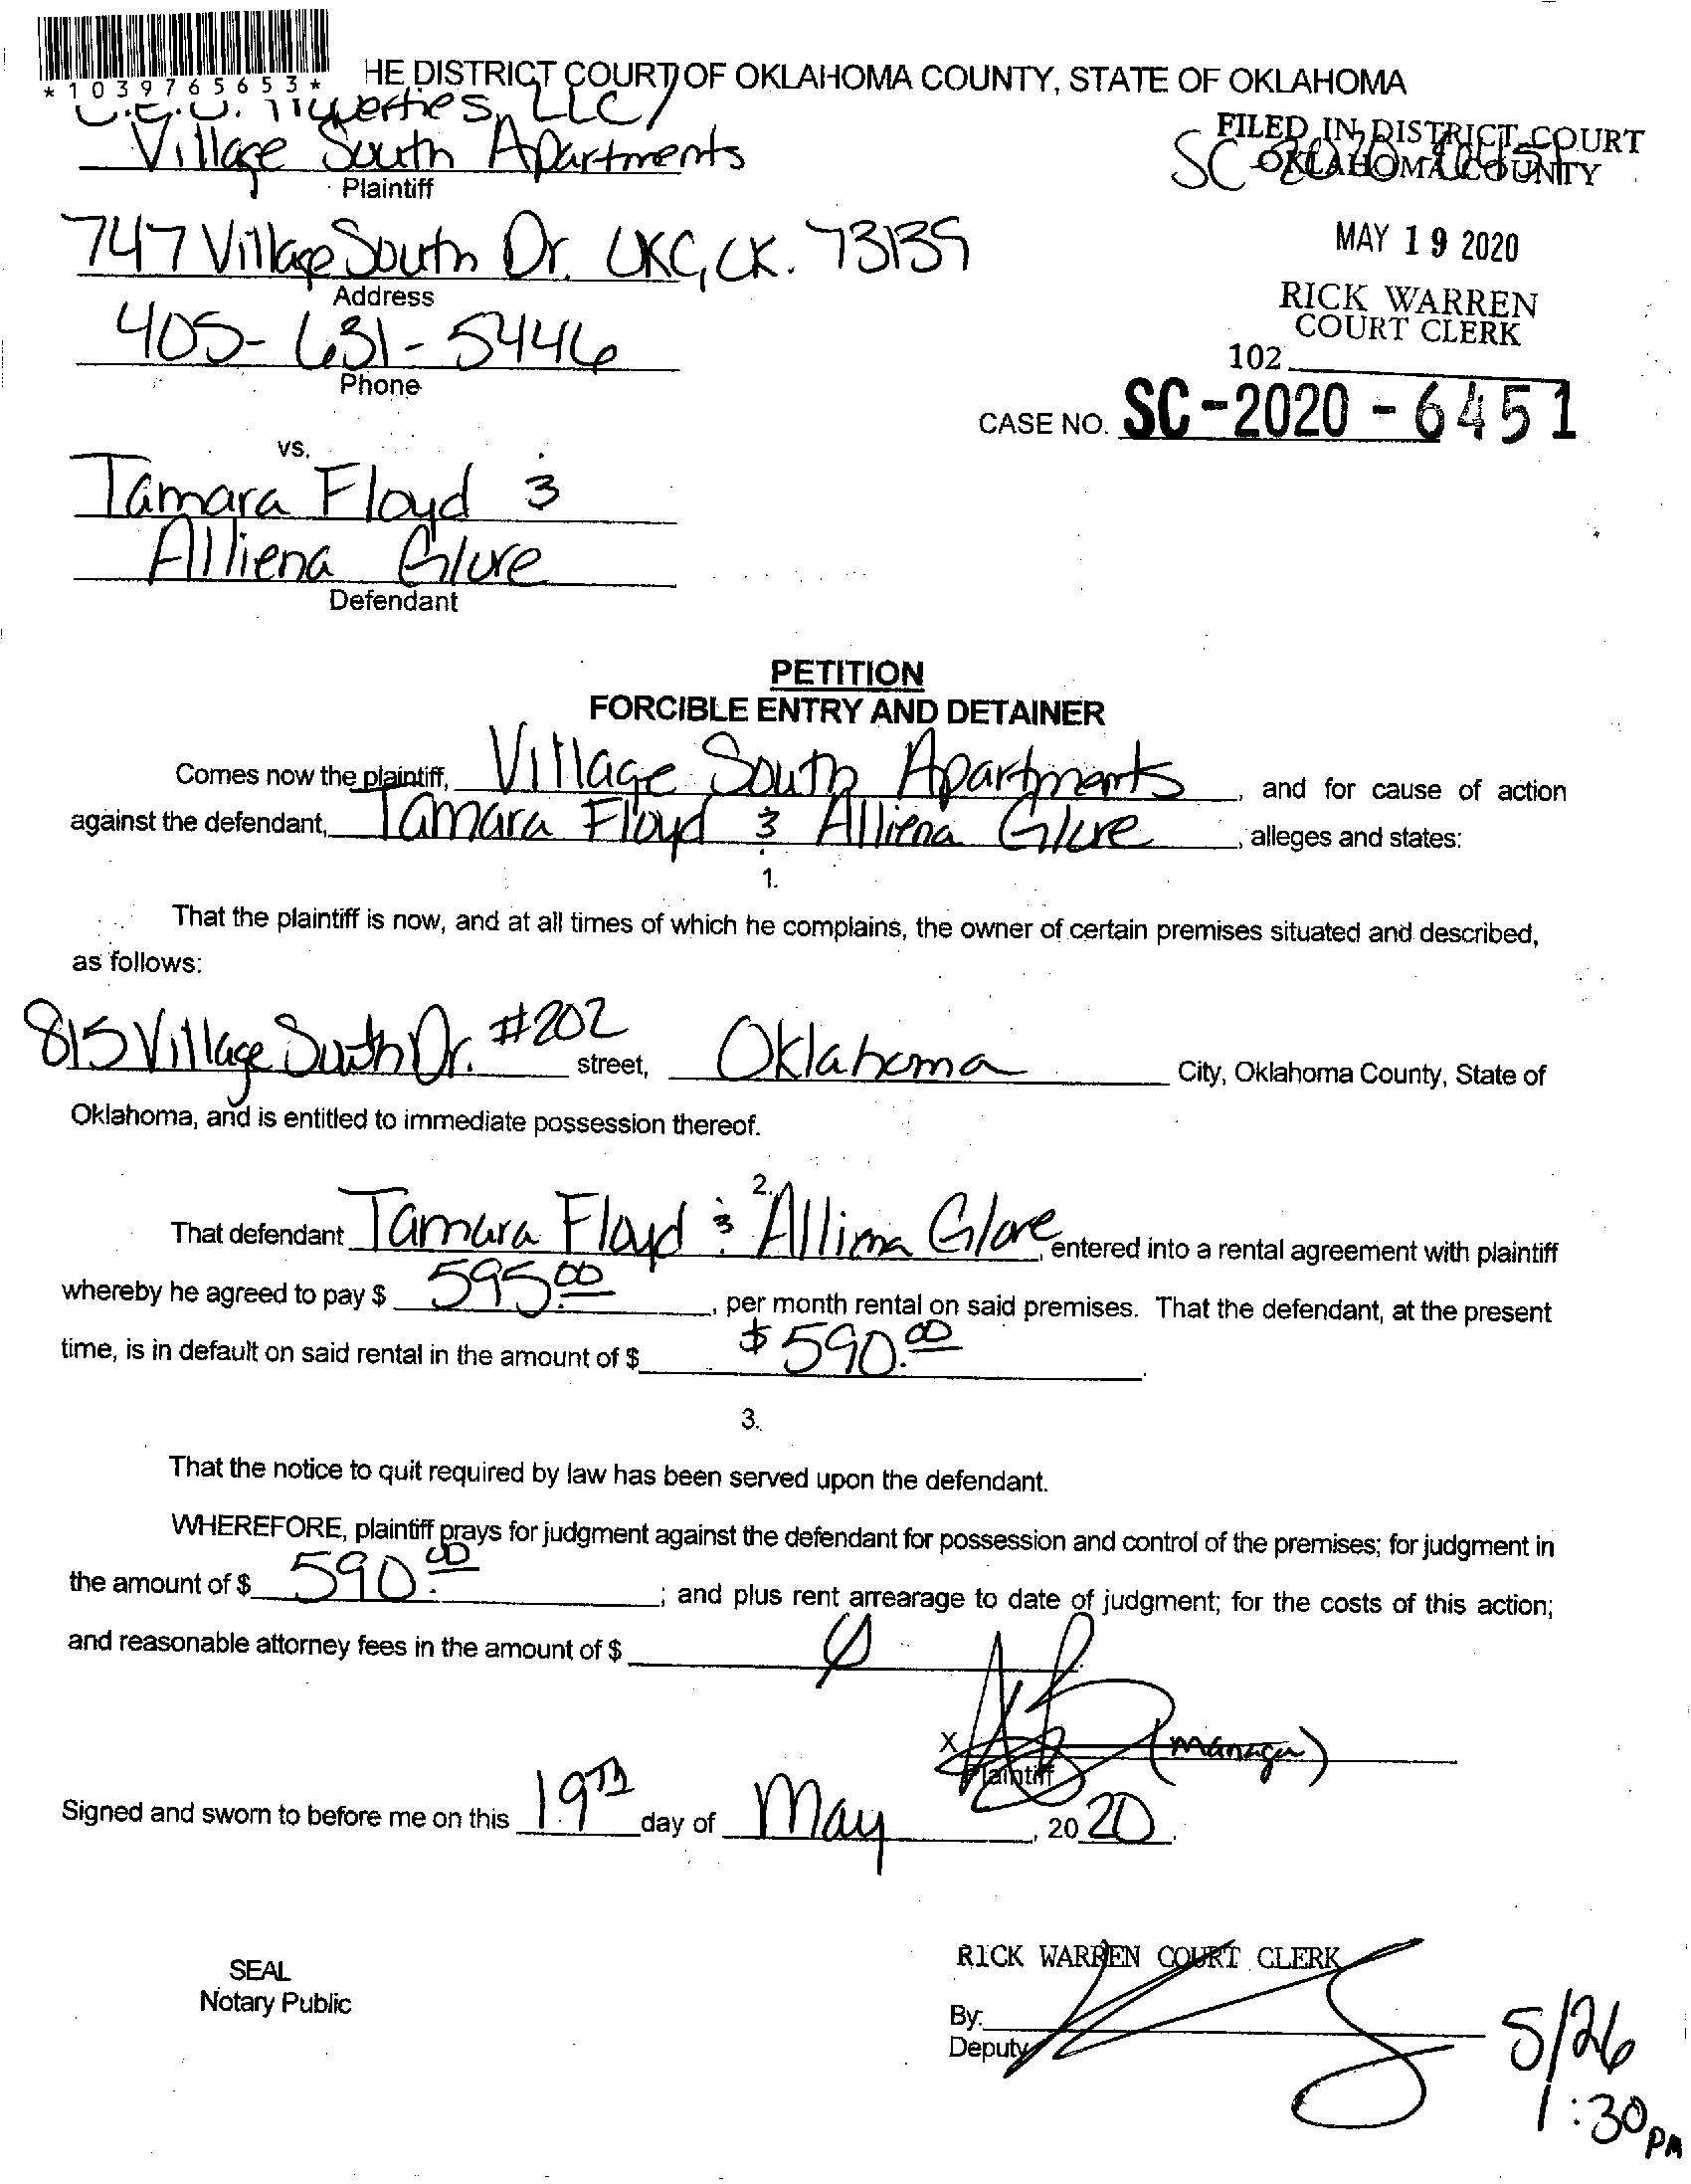 *1039765653*
HE DISTRICT COURT OF OKLAHOMA COUNTY, STATE OF OKLAHOMA
LLC/
Village South Apartments
Plaintiff
FILED IN DISTRICT COURT
OKLAHOMA COUNTY
747 Village South Dr. OKC, OK. 73139
Address
MAY 19 2020
RICK WARREN
COURT CLERK
405-631-5446
Phone
102
CASE NO. SC-2020-6451
vs.
Tamara Floyd &
Alliena Glore
Defendant
PETITION
FORCIBLE ENTRY AND DETAINER
Comes now the plaintiff, Village South Apartments, and for cause of action
against the defendant, Tamara Floyd & Alliena Glore, alleges and states:
1.
That the plaintiff is now, and at all times of which he complains, the owner of certain premises situated and described,
as follows:
815 Village South Dr. #202 street, Oklahoma City, Oklahoma County, State of
Oklahoma, and is entitled to immediate possession thereof.
2.
That defendant Tamara Floyd & Alliena Glore, entered into a rental agreement with plaintiff
whereby he agreed to pay $ 595.00, per month rental on said premises. That the defendant, at the present
time, is in default on said rental in the amount of $ $590.00.
3.
That the notice to quit required by law has been served upon the defendant.
WHEREFORE, plaintiff prays for judgment against the defendant for possession and control of the premises; for judgment in
the amount of $ 590.00; and plus rent arrearage to date of judgment; for the costs of this action;
and reasonable attorney fees in the amount of $
X (manager)
Plaintiff
Signed and sworn to before me on this 19th day of May, 2020.
SEAL
Notary Public
RICK WARREN COURT CLERK
By:
Deputy
5/26
1:30 PM